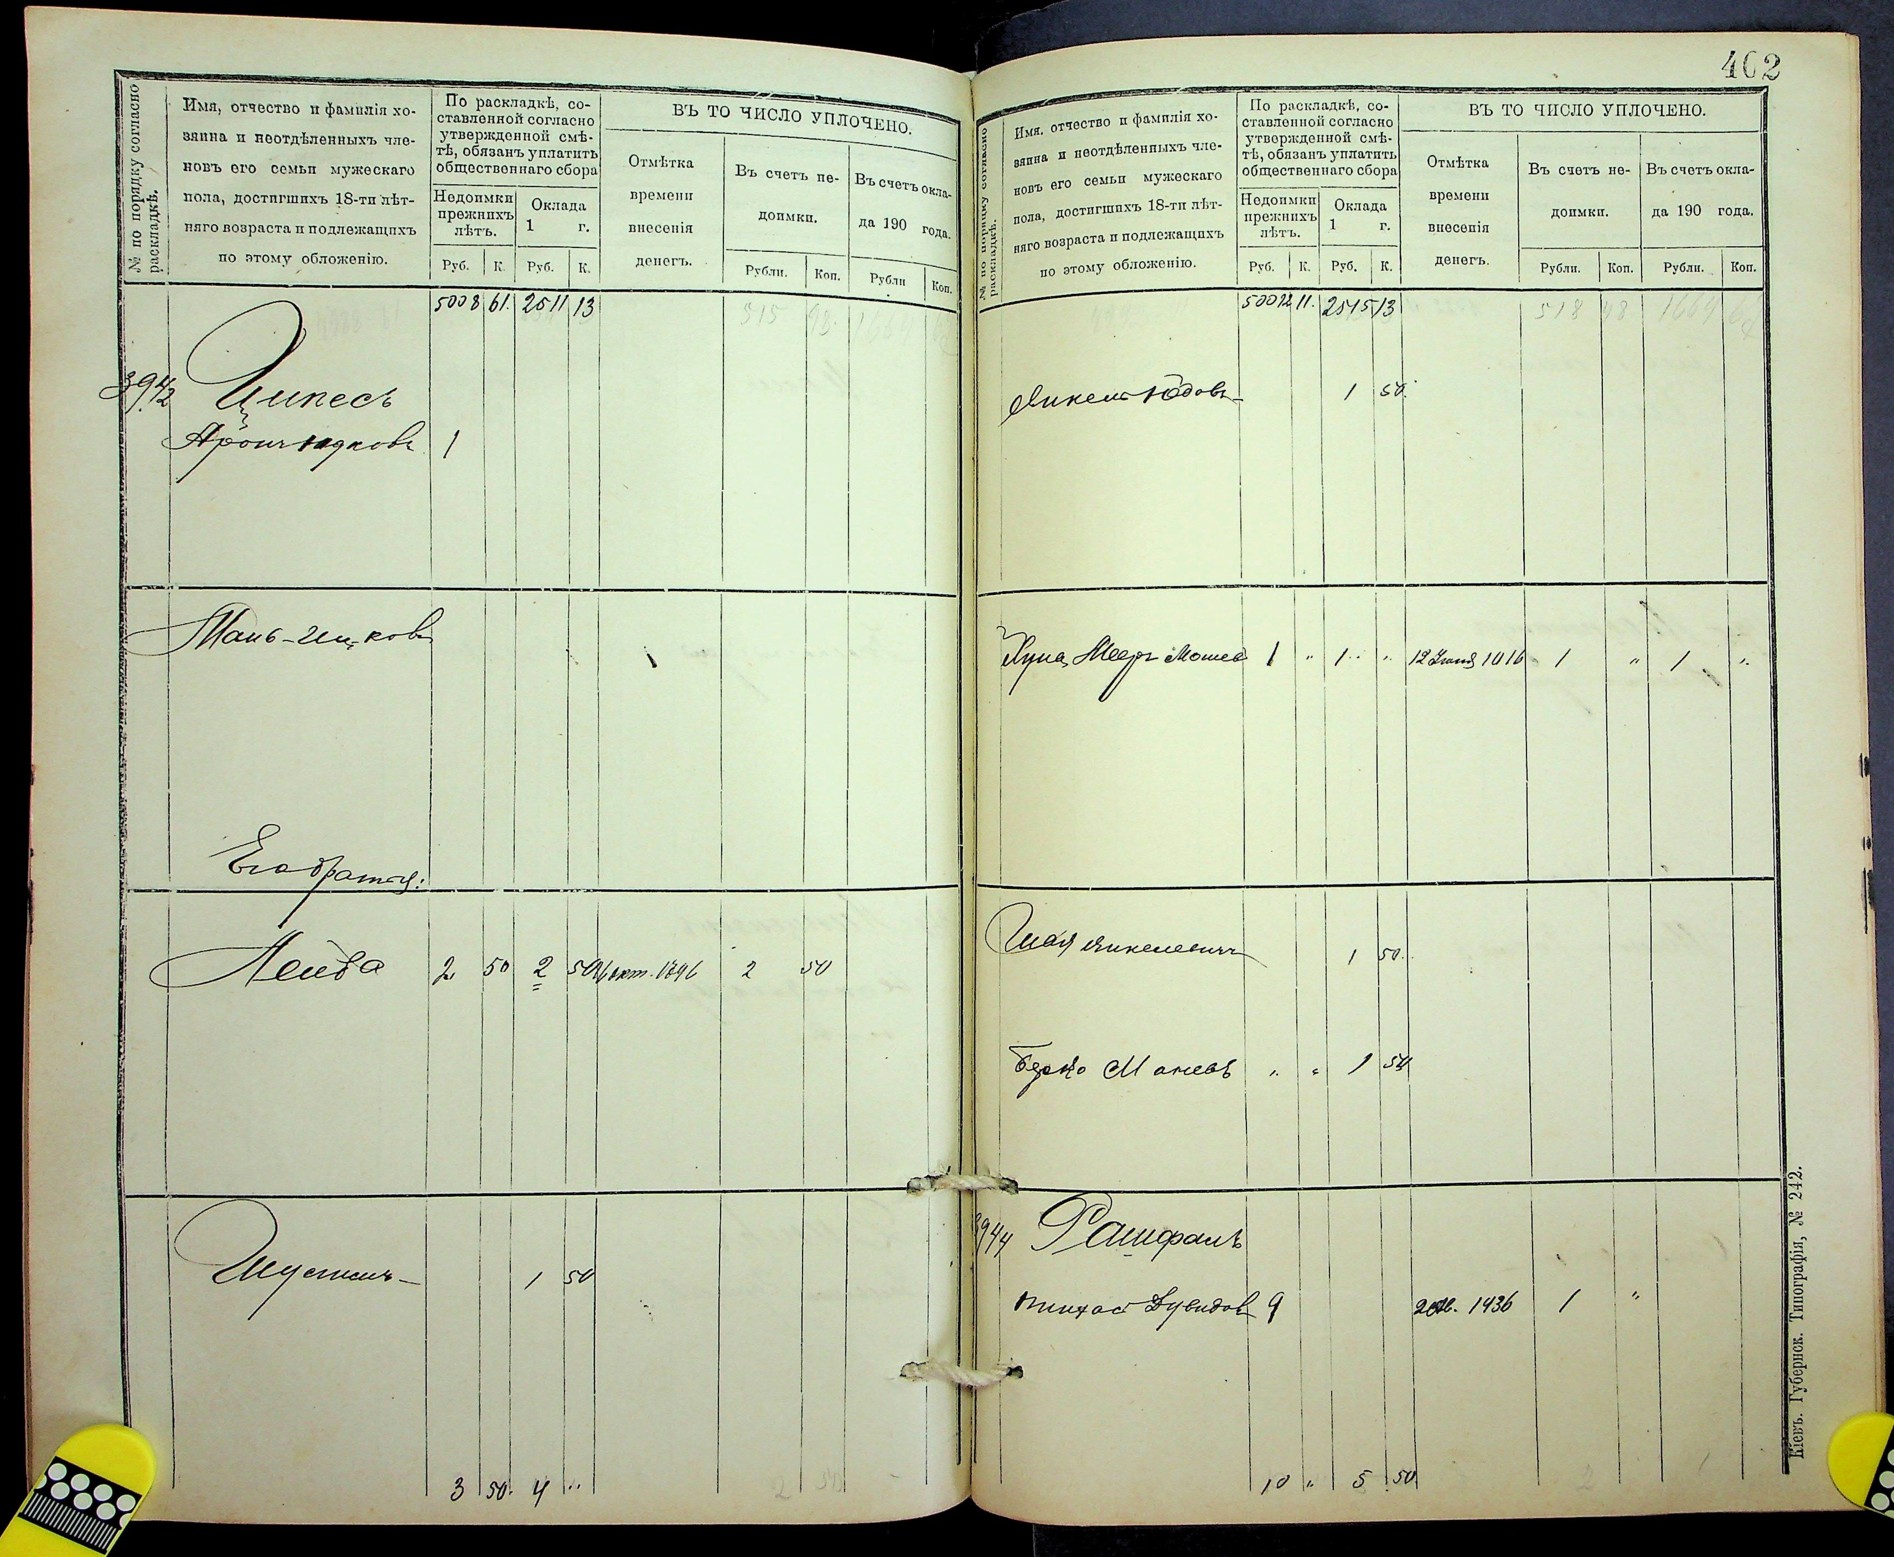 402
№ по порядку согласно
раскладкѣ.
Имя, отчество и фамилія хо-
зяина и неотдѣленныхъ чле-
новъ его семьи мужескаго
пола, достигшихъ 18-ти лѣт-
няго возраста и подлежащихъ
по этому обложенію.
По раскладкѣ, со-
ставленной согласно
утвержденной смѣ-
тѣ, обязанъ уплатить
общественнаго сбора
Недоимки
прежнихъ
лѣтъ.
Оклада
1 г.
Руб. К. Руб. К.
ВЪ ТО ЧИСЛО УПЛОЧЕНО.
Отмѣтка
времени
внесенія
денегъ.
Въ счетъ не-
доимки.
Въ счетъ окла-
да 190 года.
Рубли. Коп. Рубли Коп.
5008 61. 2511 13
3942 Ципесъ
1
Мань-Ицковъ
Его братья:
Лейба 2 50 2 50 26 окт. 1896 2 50
1 50
3 50. 4 "
№ по порядку согласно
раскладкѣ.
Имя, отчество и фамилія хо-
зяина и неотдѣленныхъ чле-
новъ его семьи мужескаго
пола, достигшихъ 18-ти лѣт-
няго возраста и подлежащихъ
по этому обложенію.
По раскладкѣ, со-
ставленной согласно
утвержденной смѣ-
тѣ, обязанъ уплатить
общественнаго сбора
Недоимки
прежнихъ
лѣтъ.
Оклада
1 г.
Руб. К. Руб. К.
ВЪ ТО ЧИСЛО УПЛОЧЕНО.
Отмѣтка
времени
внесенія
денегъ.
Въ счетъ не-
доимки.
Въ счетъ окла-
да 190 года.
Рубли. Коп. Рубли. Коп.
50012 11. 2515 13
1 50.
Мееръ 1 " 1 " 12 1 " 1 "
1 50.
Берко " " 1 50
3944
Пинхас Дувидов 9 1 "
10 " 5 50
Кіевъ. Губернск. Типографія, № 242.